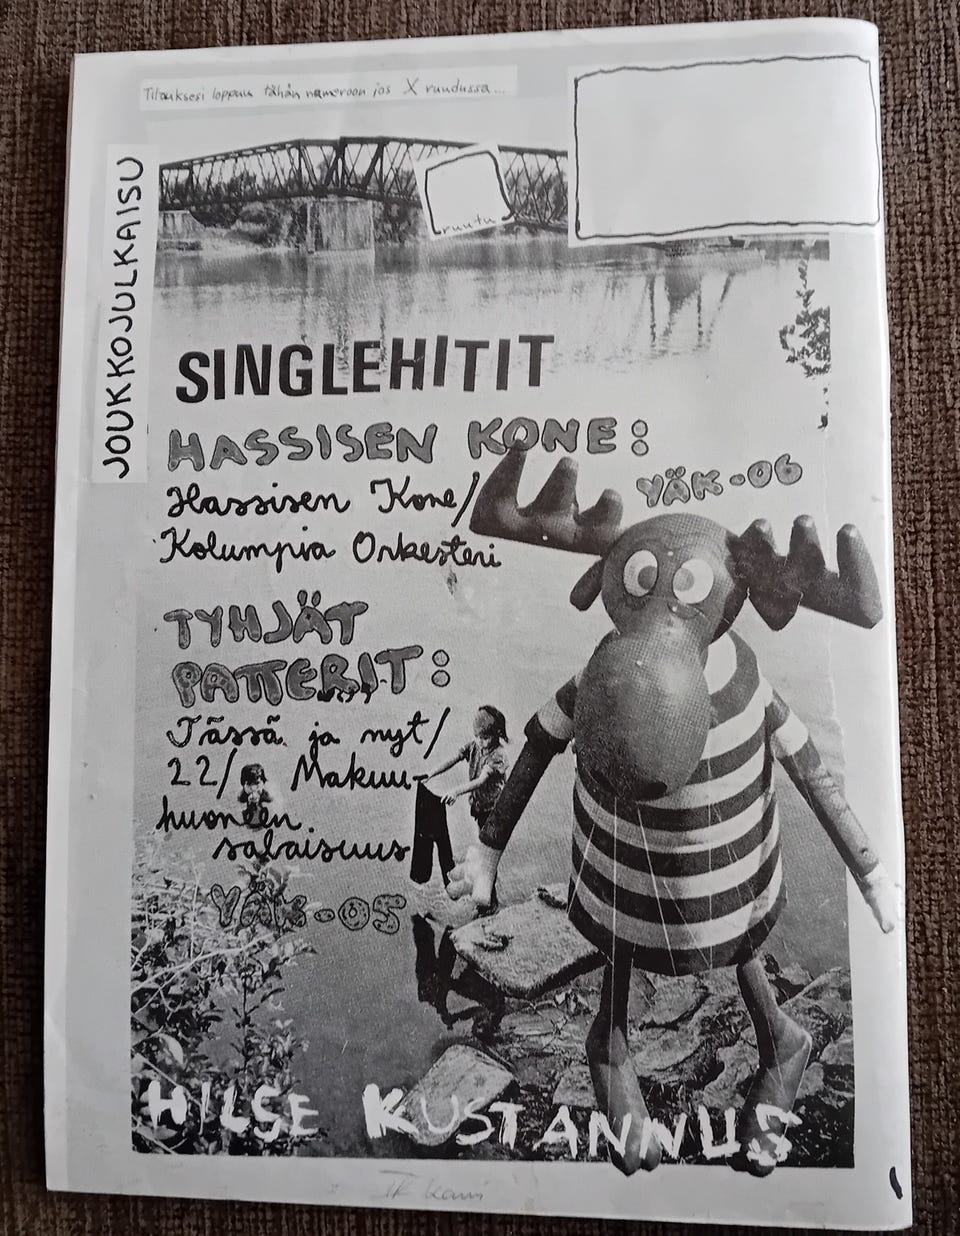 Tilauksesi loppuu tähän numeroon jos X ruudussa...
ruutu
JOUKKOJULKAISU
SINGLEHITIT
HASSISEN KONE:
YÄK-06
Hassisen Kone/
Kolumpia Orkesteri
TYHJÄT
PATTERIT:
Tässä ja nyt/
22/ Makuu-
huoneen
salaisuus
YÄK-05
HILSE KUSTANNUS